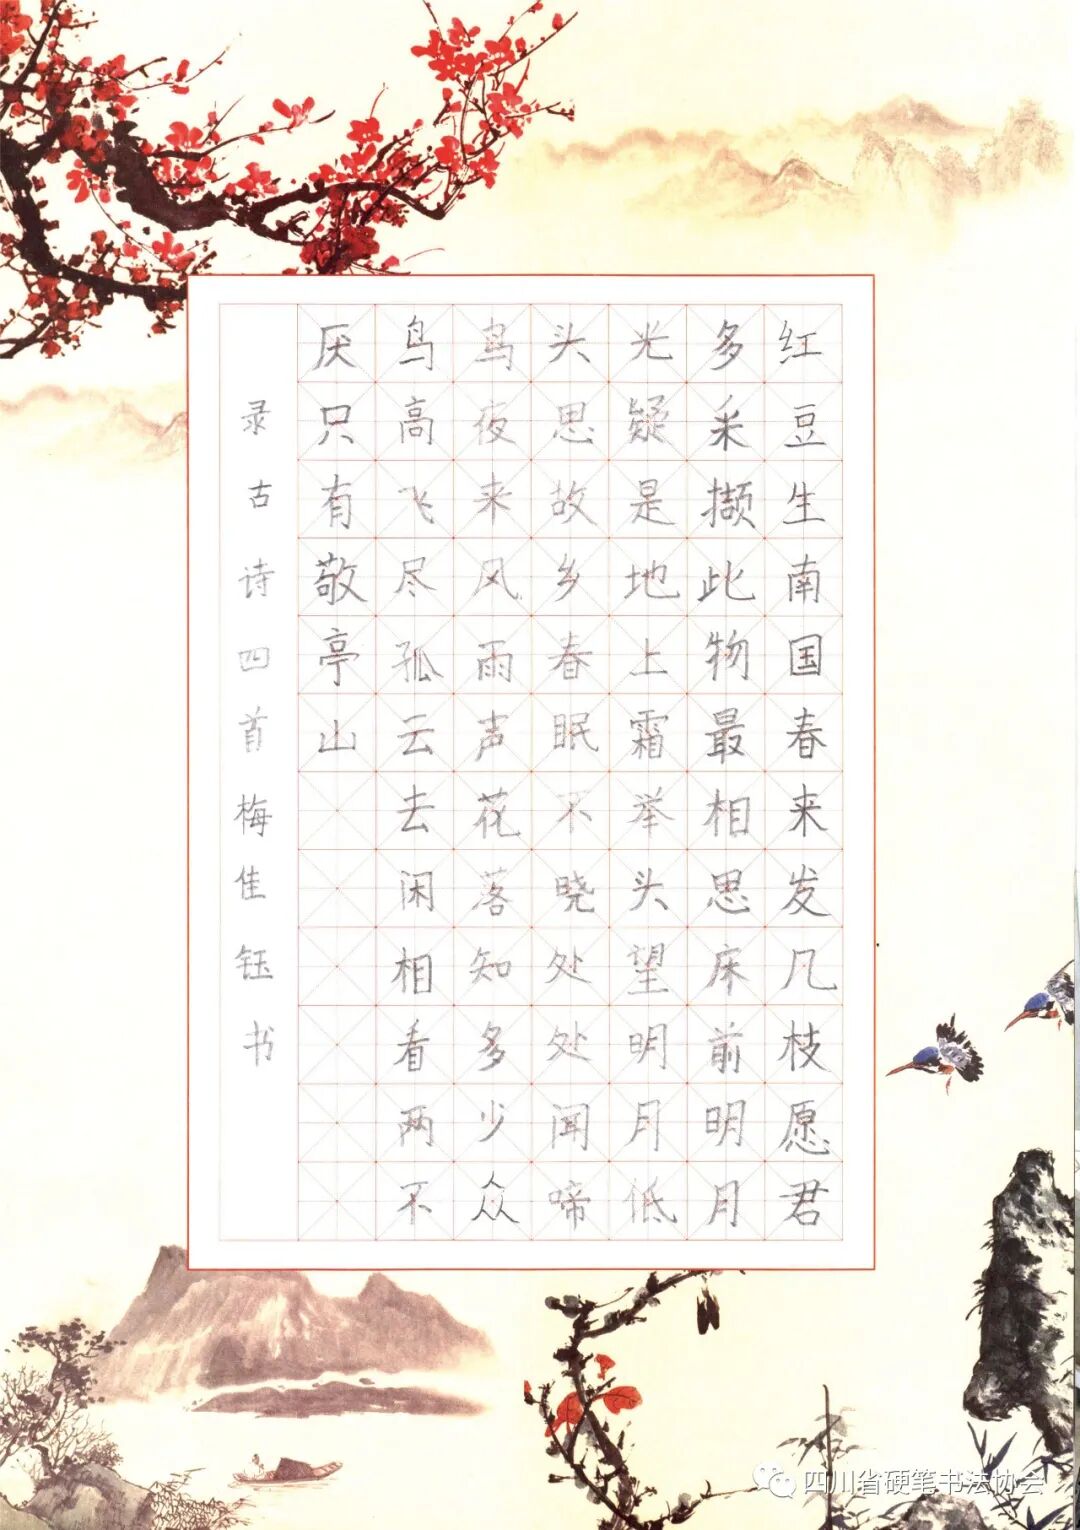 红豆生南国春来发几枝愿君
多采撷此物最相思床前明月
光疑是地上霜举头望明月低
头思故乡春眠不晓处处闻啼
鸟夜来风雨声花落知多少众
鸟高飞尽孤云去闲相看两不
厌只有敬亭山
录古诗四首梅佳钰书
四川省硬笔书法协会